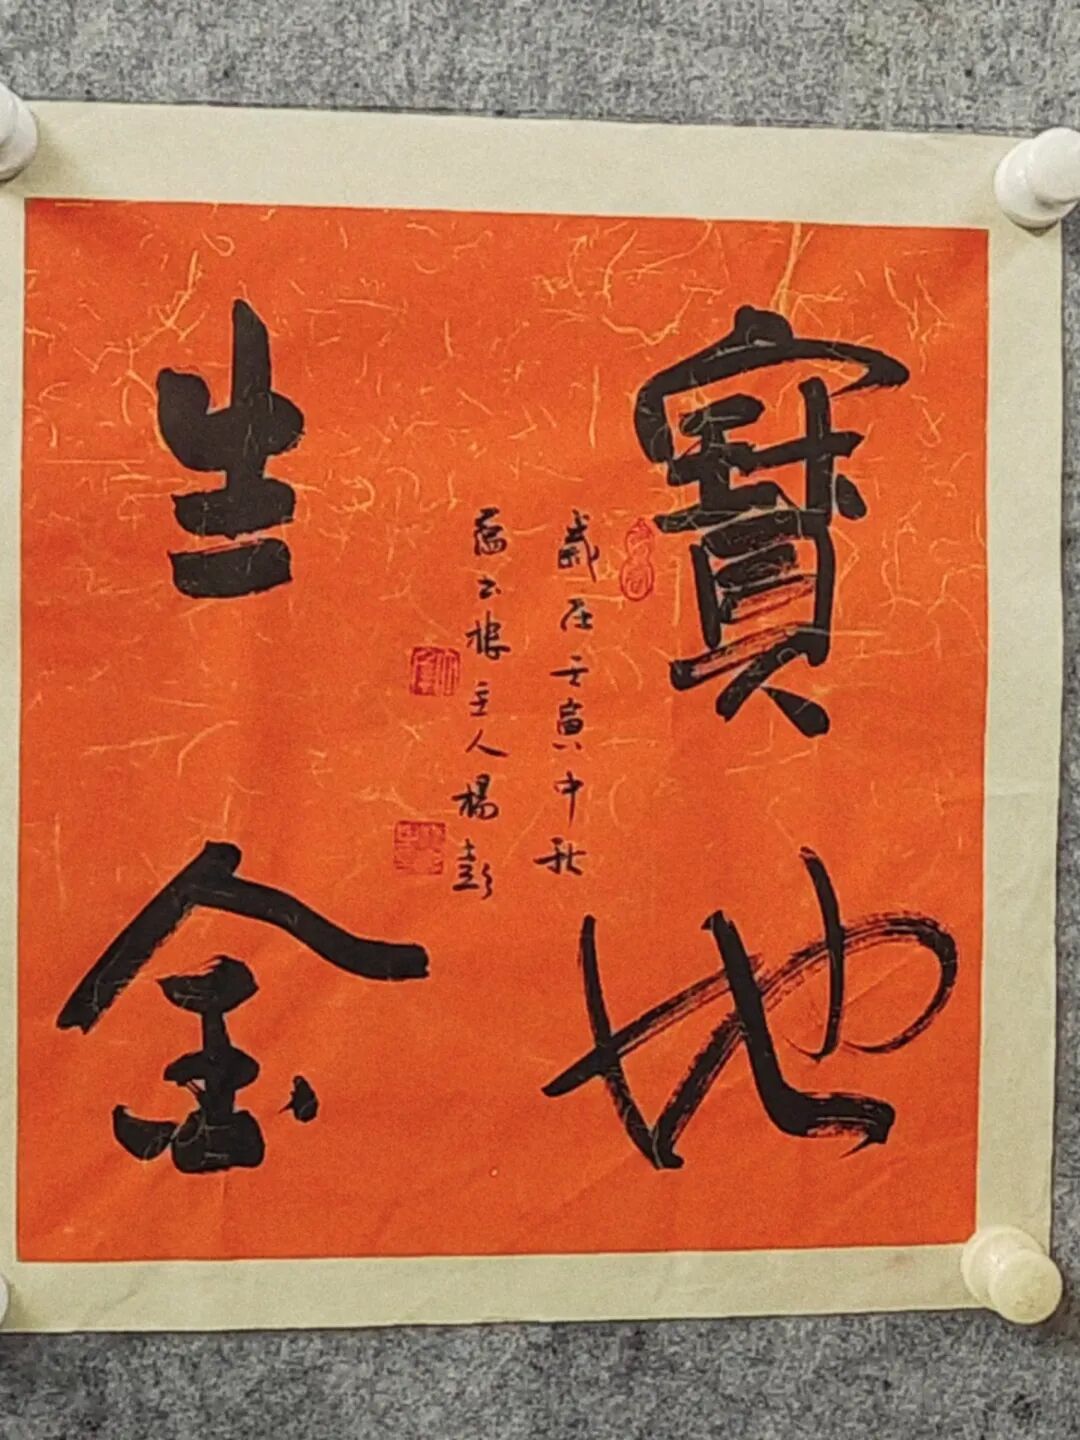 寶地
生金
歲在壬寅中秋
主人楊彭